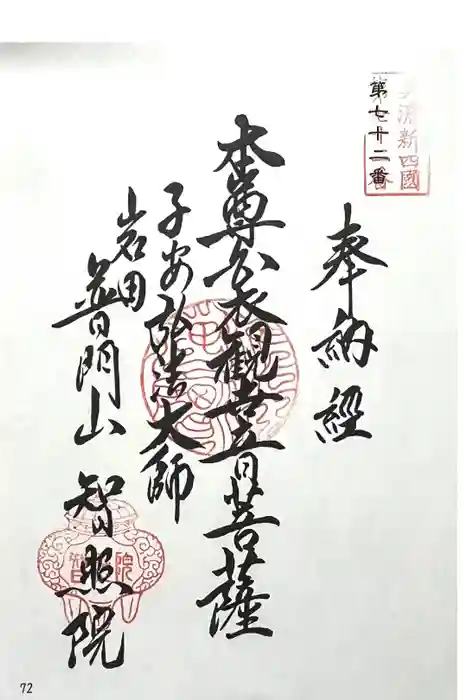 新四國
第七十二番
奉納経
本尊 公衣観世音菩薩
子安弘法大師
岩田
普門山 智照院
72